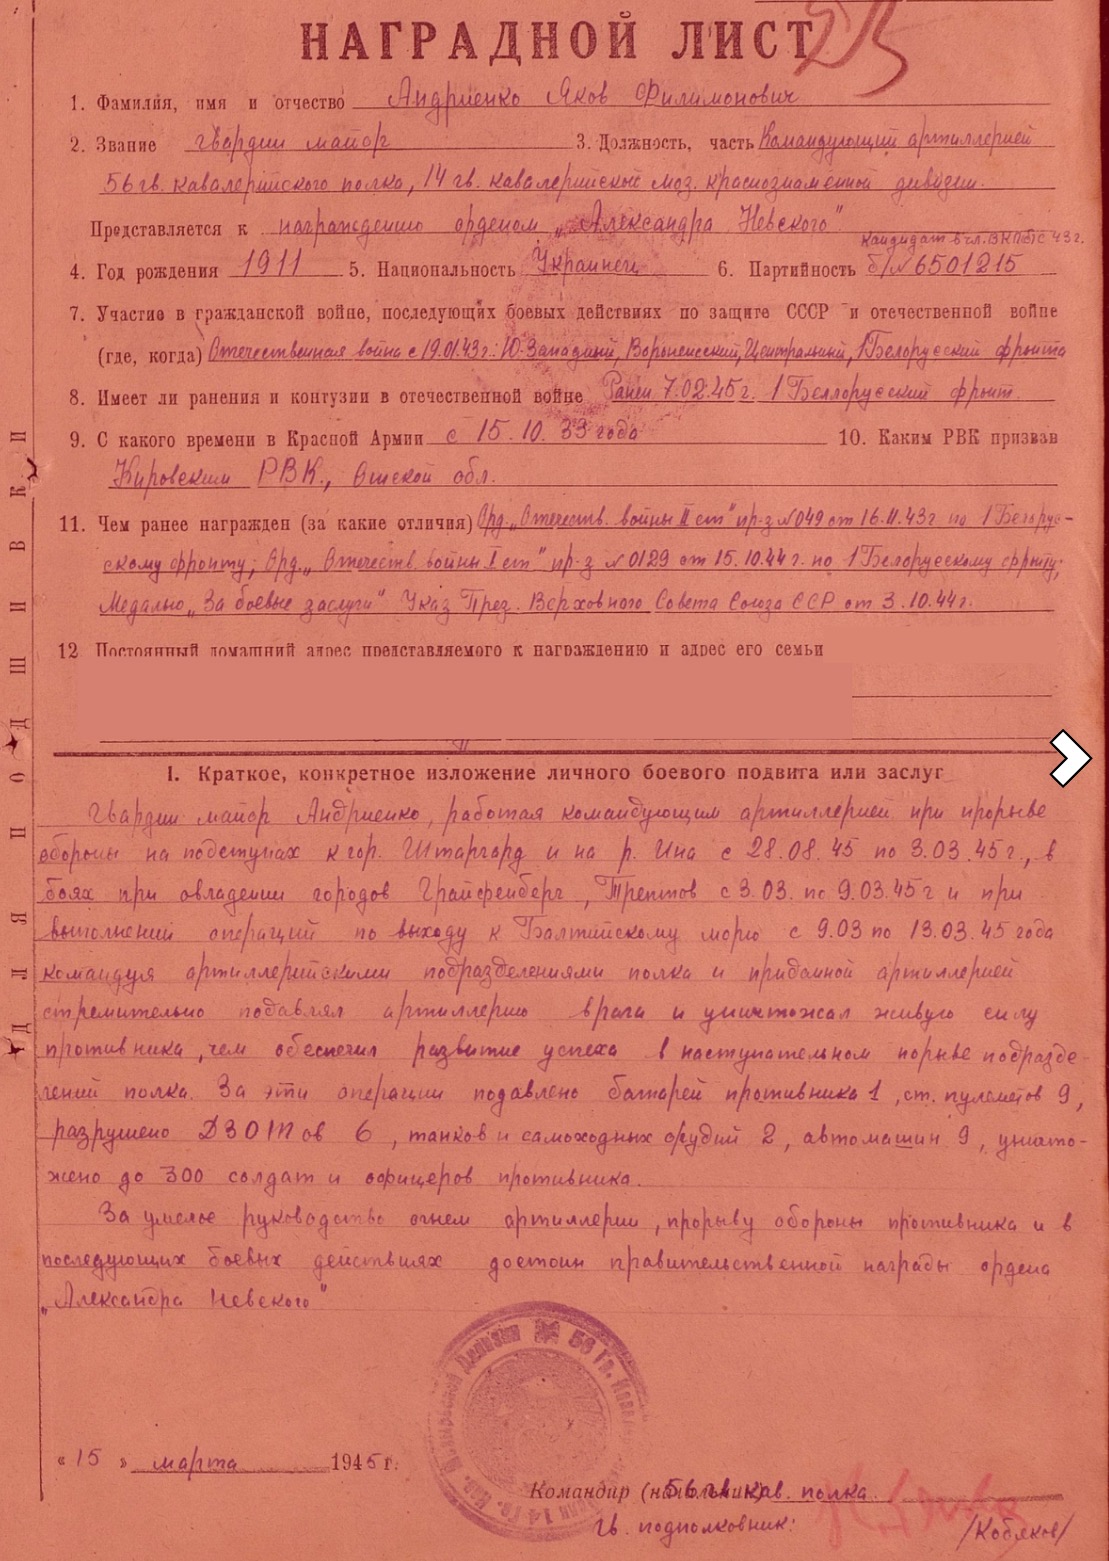 НАГРАДНОЙ ЛИСТ
1. Фамилия, имя и отчество Андриенко Яков Филимонович
2. Звание гвардии майор 3. Должность, часть Командующий артиллерией
56 гв. кавалерийского полка, 14 гв. кавалерийской моз. краснознаменной дивизии.
Представляется к награждению орденом „Александра Невского"
кандидат в чл. ВКП/б/ с 43 г.
4. Год рождения 1911 5. Национальность Украинец 6. Партийность б/№ 6501215
7. Участие в гражданской войне, последующих боевых действиях по защите СССР и отечественной войне
(где, когда) Отечественная война с 19.01.43г.: Ю-Западный, Воронежский, Центральный, 1 Белорусский фронта
8. Имеет ли ранения и контузии в отечественной войне Ранен 7.02.45 г. 1 Белорусский фронт.
9. С какого времени в Красной Армии с 15.10.33 года 10. Каким РВК призван
Кировским РВК., Ошской обл.
11. Чем ранее награжден (за какие отличия) Орд. „Отечеств. войны II ст" пр-з №049 от 16.11.43г по 1 Белорус-
скому фронту; Орд. „Отечеств. войны I ст" пр-з №0129 от 15.10.44 г. по 1 Белорусскому фронту;
Медалью „За боевые заслуги" Указ През. Верховного Совета Союза ССР от 3.10.44г.
12 Постоянный домашний адрес представляемого к награждению и адрес его семьи
I. Краткое, конкретное изложение личного боевого подвига или заслуг
Гвардии майор Андриенко, работая командующим артиллерией при прорыве
обороны на подступах к гор. Штаргард и на р. Ина с 28.08.45 по 3.03.45г., в
боях при овладении городов Грайфенберг, Трептов с 3.03. по 9.03.45г и при
выполнений операций по выходу к Балтийскому морю с 9.03 по 13.03.45 года
командуя артиллерийскими подразделениями полка и приданной артиллерией
стремительно подавлял артиллерию врага и уничтожал живую силу
противника, чем обеспечил развитие успеха в наступательном порыве подразде-
лений полка. За эти операции подавлено батарей противника 1, ст. пулеметов 9,
разрушено ДЗОТ ов 6, танков и самоходных орудий 2, автомашин 9, уничто-
жено до 300 солдат и офицеров противника.
За умелое руководство огнем артиллерии, прорыву обороны противника и в
последующих боевых действиях достоин правительственной награды ордена
„Александра Невского"
« 15 » марта 1945 г.
Командир (начальник) 56 гв. кав. полка.
Гв. подполковник: /Кобяков/
ДЛЯ ПОДШИВКИ